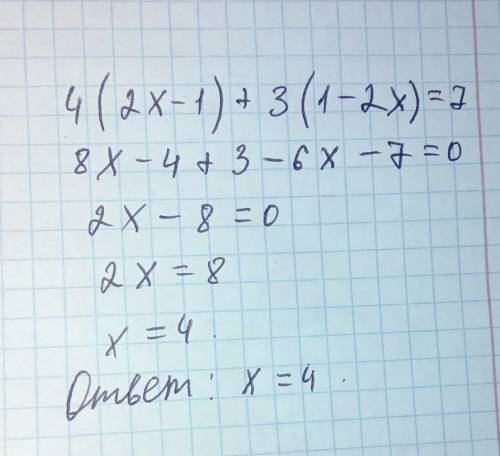 4(2x-1)+3(1-2x)=7
8x-4+3-6x-7=0
2x-8=0
2x=8
x=4.
Ответ: x=4.